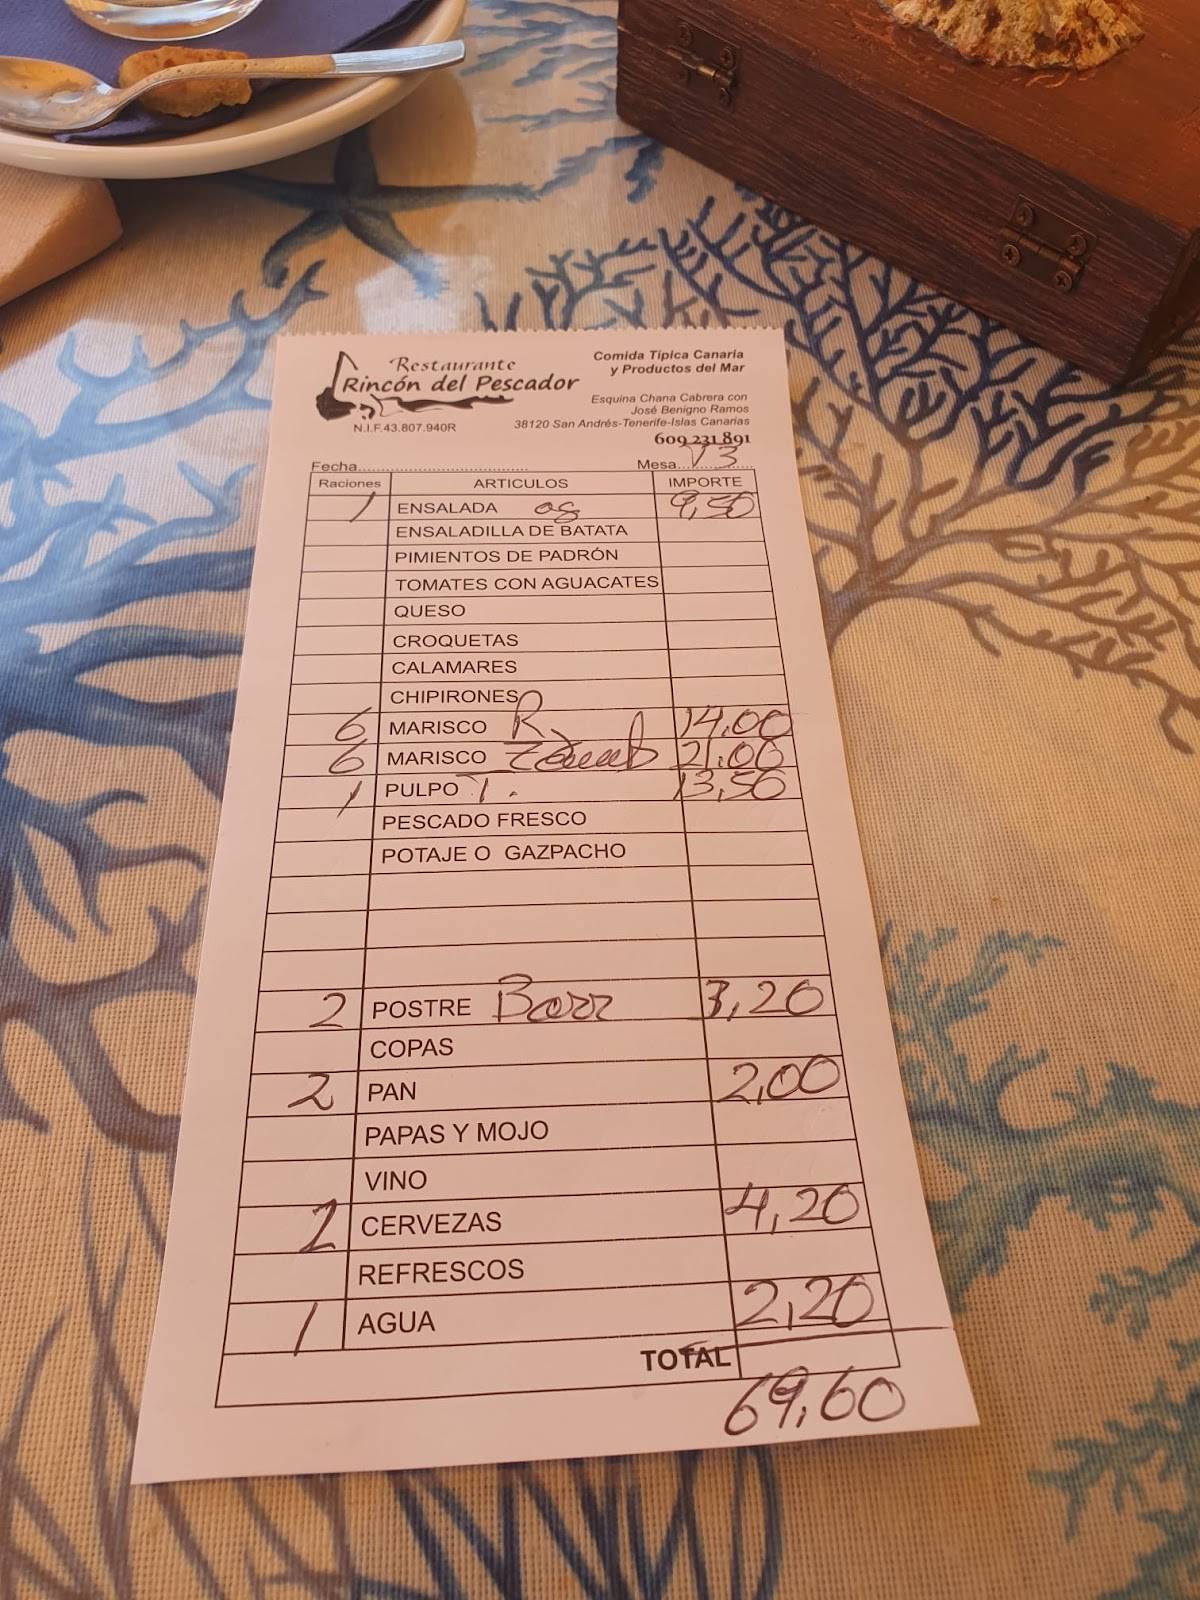 Restaurante
Rincón del Pescador
N.I.F.43.807.940R
Comida Típica Canaria
y Productos del Mar
Esquina Chana Cabrera con
José Benigno Ramos
38120 San Andrés-Tenerife-Islas Canarias
609 231 891
Fecha.................................... Mesa...T3
Raciones ARTICULOS IMPORTE
1 ENSALADA 9,50
ENSALADILLA DE BATATA
PIMIENTOS DE PADRÓN
TOMATES CON AGUACATES
QUESO
CROQUETAS
CALAMARES
CHIPIRONES
6 MARISCO R 14,00
6 MARISCO 21,00
1 PULPO T. 13,50
PESCADO FRESCO
POTAJE O GAZPACHO
2 POSTRE 3,20
COPAS
2 PAN 2,00
PAPAS Y MOJO
VINO
2 CERVEZAS 4,20
REFRESCOS
1 AGUA 2,20
TOTAL
69,60